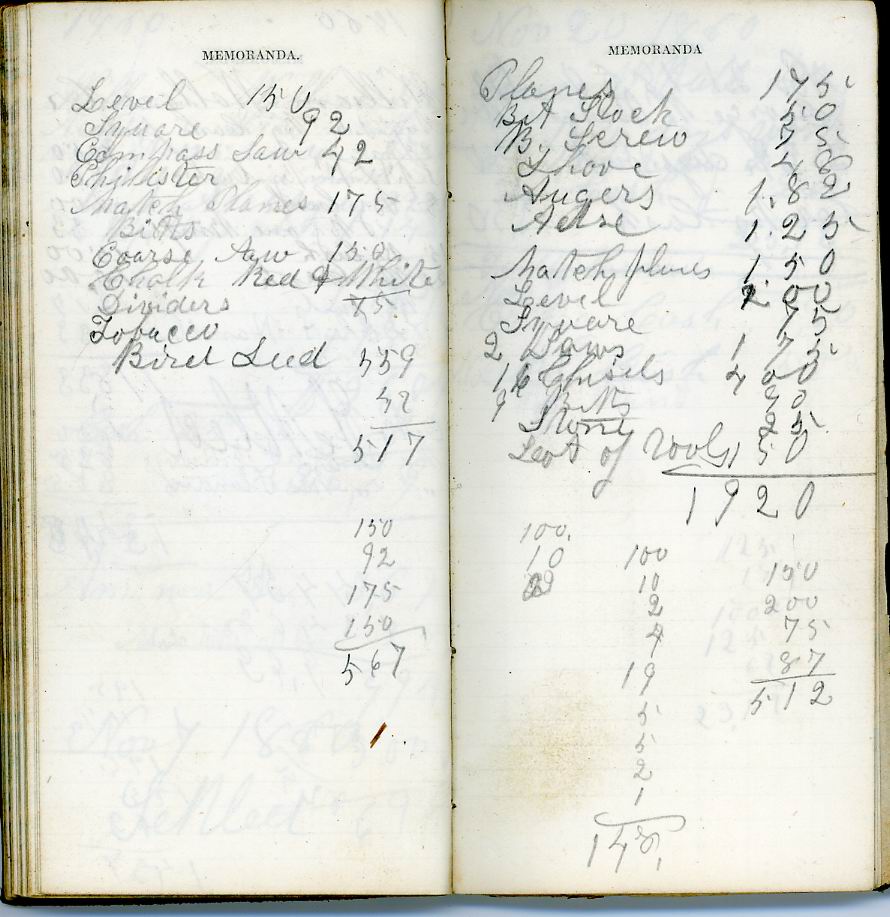 MEMORANDA.
Level 150
Square 92
Compass Saw 42
Philister
Match Planes 175
Bitts
Coarse Saw 150
Chalk Red & White
Dividers 75
Tobacco
Bird Seed 559
42
517
150
92
175
150
567
MEMORANDA
Planes 175
Bit Stock 50
B. Screw 75
Shove 48
Augers 1.82
Adse 1.25
Match planes 150
Level 200
Square 75
2 Saws 175
16 Chisels 400
9 Bits 90
Stone 25
Lot of Tools 50
1920
100.
10
100
10
2
4
19
5
5
2
1
148
150
200
75
87
512